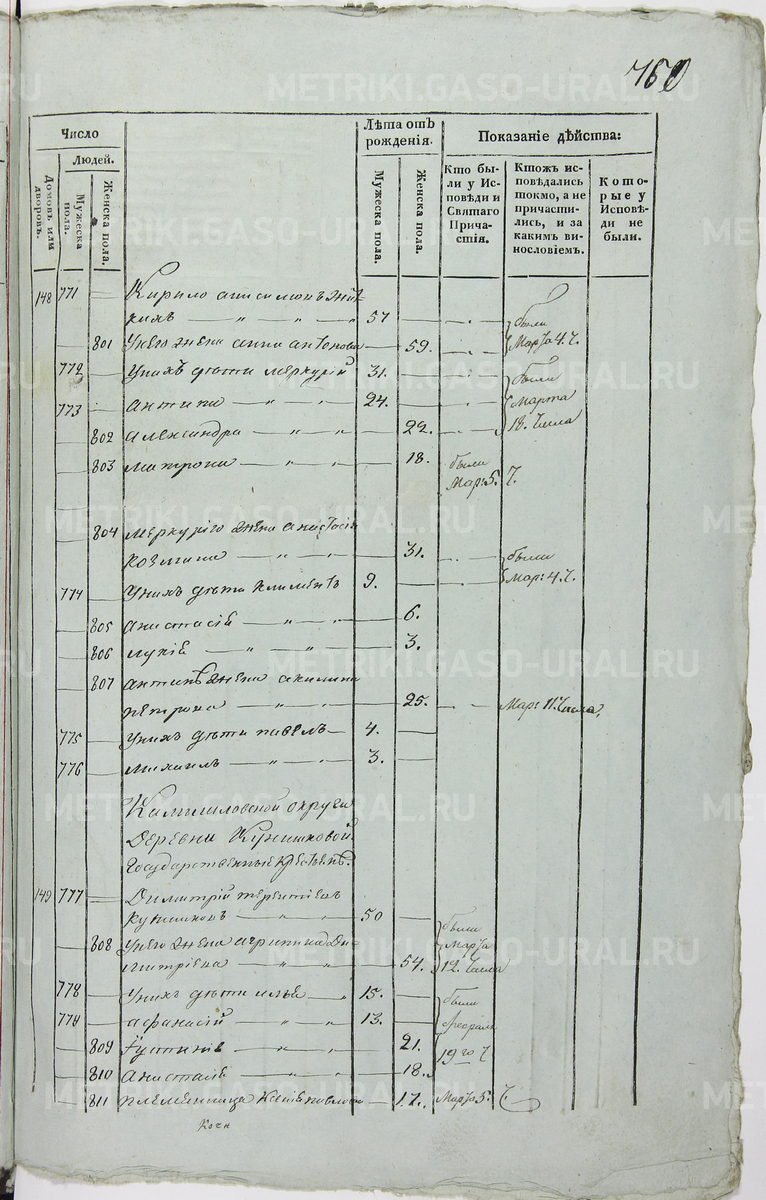 760
Число
Лѣта отъ рожденія.
Показаніе дѣйства:
Людей.
Домовъ или дворовъ.
Мужеска пола.
Женска пола.
Мужеска пола.
Женска пола.
Кто бы-
ли у Ис-
повѣди и
Святаго
Прича-
стія.
Ктожъ ис-
повѣдались
токмо, а не
причасти-
лись, и за
какимъ ви-
нословіемъ.
Кото-
рые у
Исповѣ-
ди не
были.
148 771 Кирило
кихъ — „ — „ — „ 57 были
801 У него жена анна антонова 59. Марта 4. ч.
772 У нихъ дѣти меркурій 31. были
773 антипа — „ — „ 24. Марта
802 александра — „ — „ 22. 18. числа
803 матрона — „ — „ 18. были
Мар: 5. ч.
804 меркуріго жена анастасія
козмина — „ — „ 31. были
774 У нихъ дѣти климентъ 9. Мар: 4. ч.
805 анастасія — „ — „ 6.
806 лукія — „ — „ 3.
807 антипѣ жена акилина
петрова — „ — „ 25. Мар: 11. числа.
775 У нихъ дѣти павелъ 4.
776 михаилъ — „ — „ 3.
Камышловской округи
Деревни
Государственные крестьянъ.
149 777 Димитрій терентіевъ
— „ — „ 50 были
808 У него жена агрипина Ди- Марта
митріева — „ — „ 54. 12. числа
778 У нихъ дѣти илья — „ 15. были
779 афанасій — „ — „ 13. Февраля
809 — „ — „ 21. 19го ч.
810 — „ — „ 18.
811 племянница павлова 17. Марта 5. ч.
METRIKI.GASO-URAL.RU